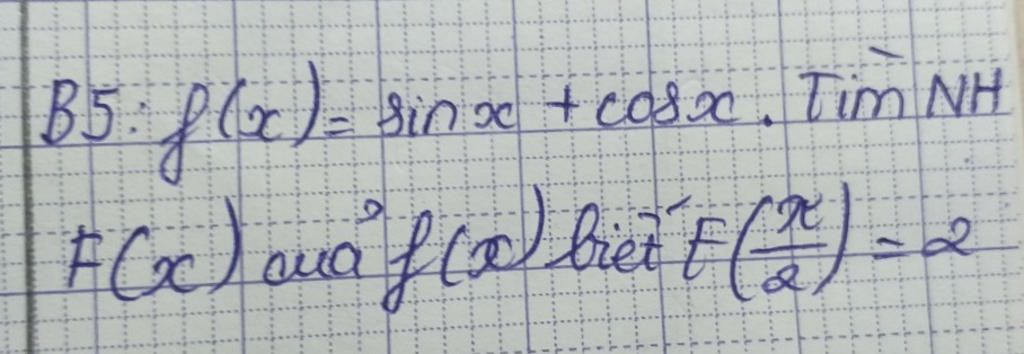 B5: f(x) = sinx + cosx. Tìm NH
F(x) của f(x) biết F(π/2) = 2